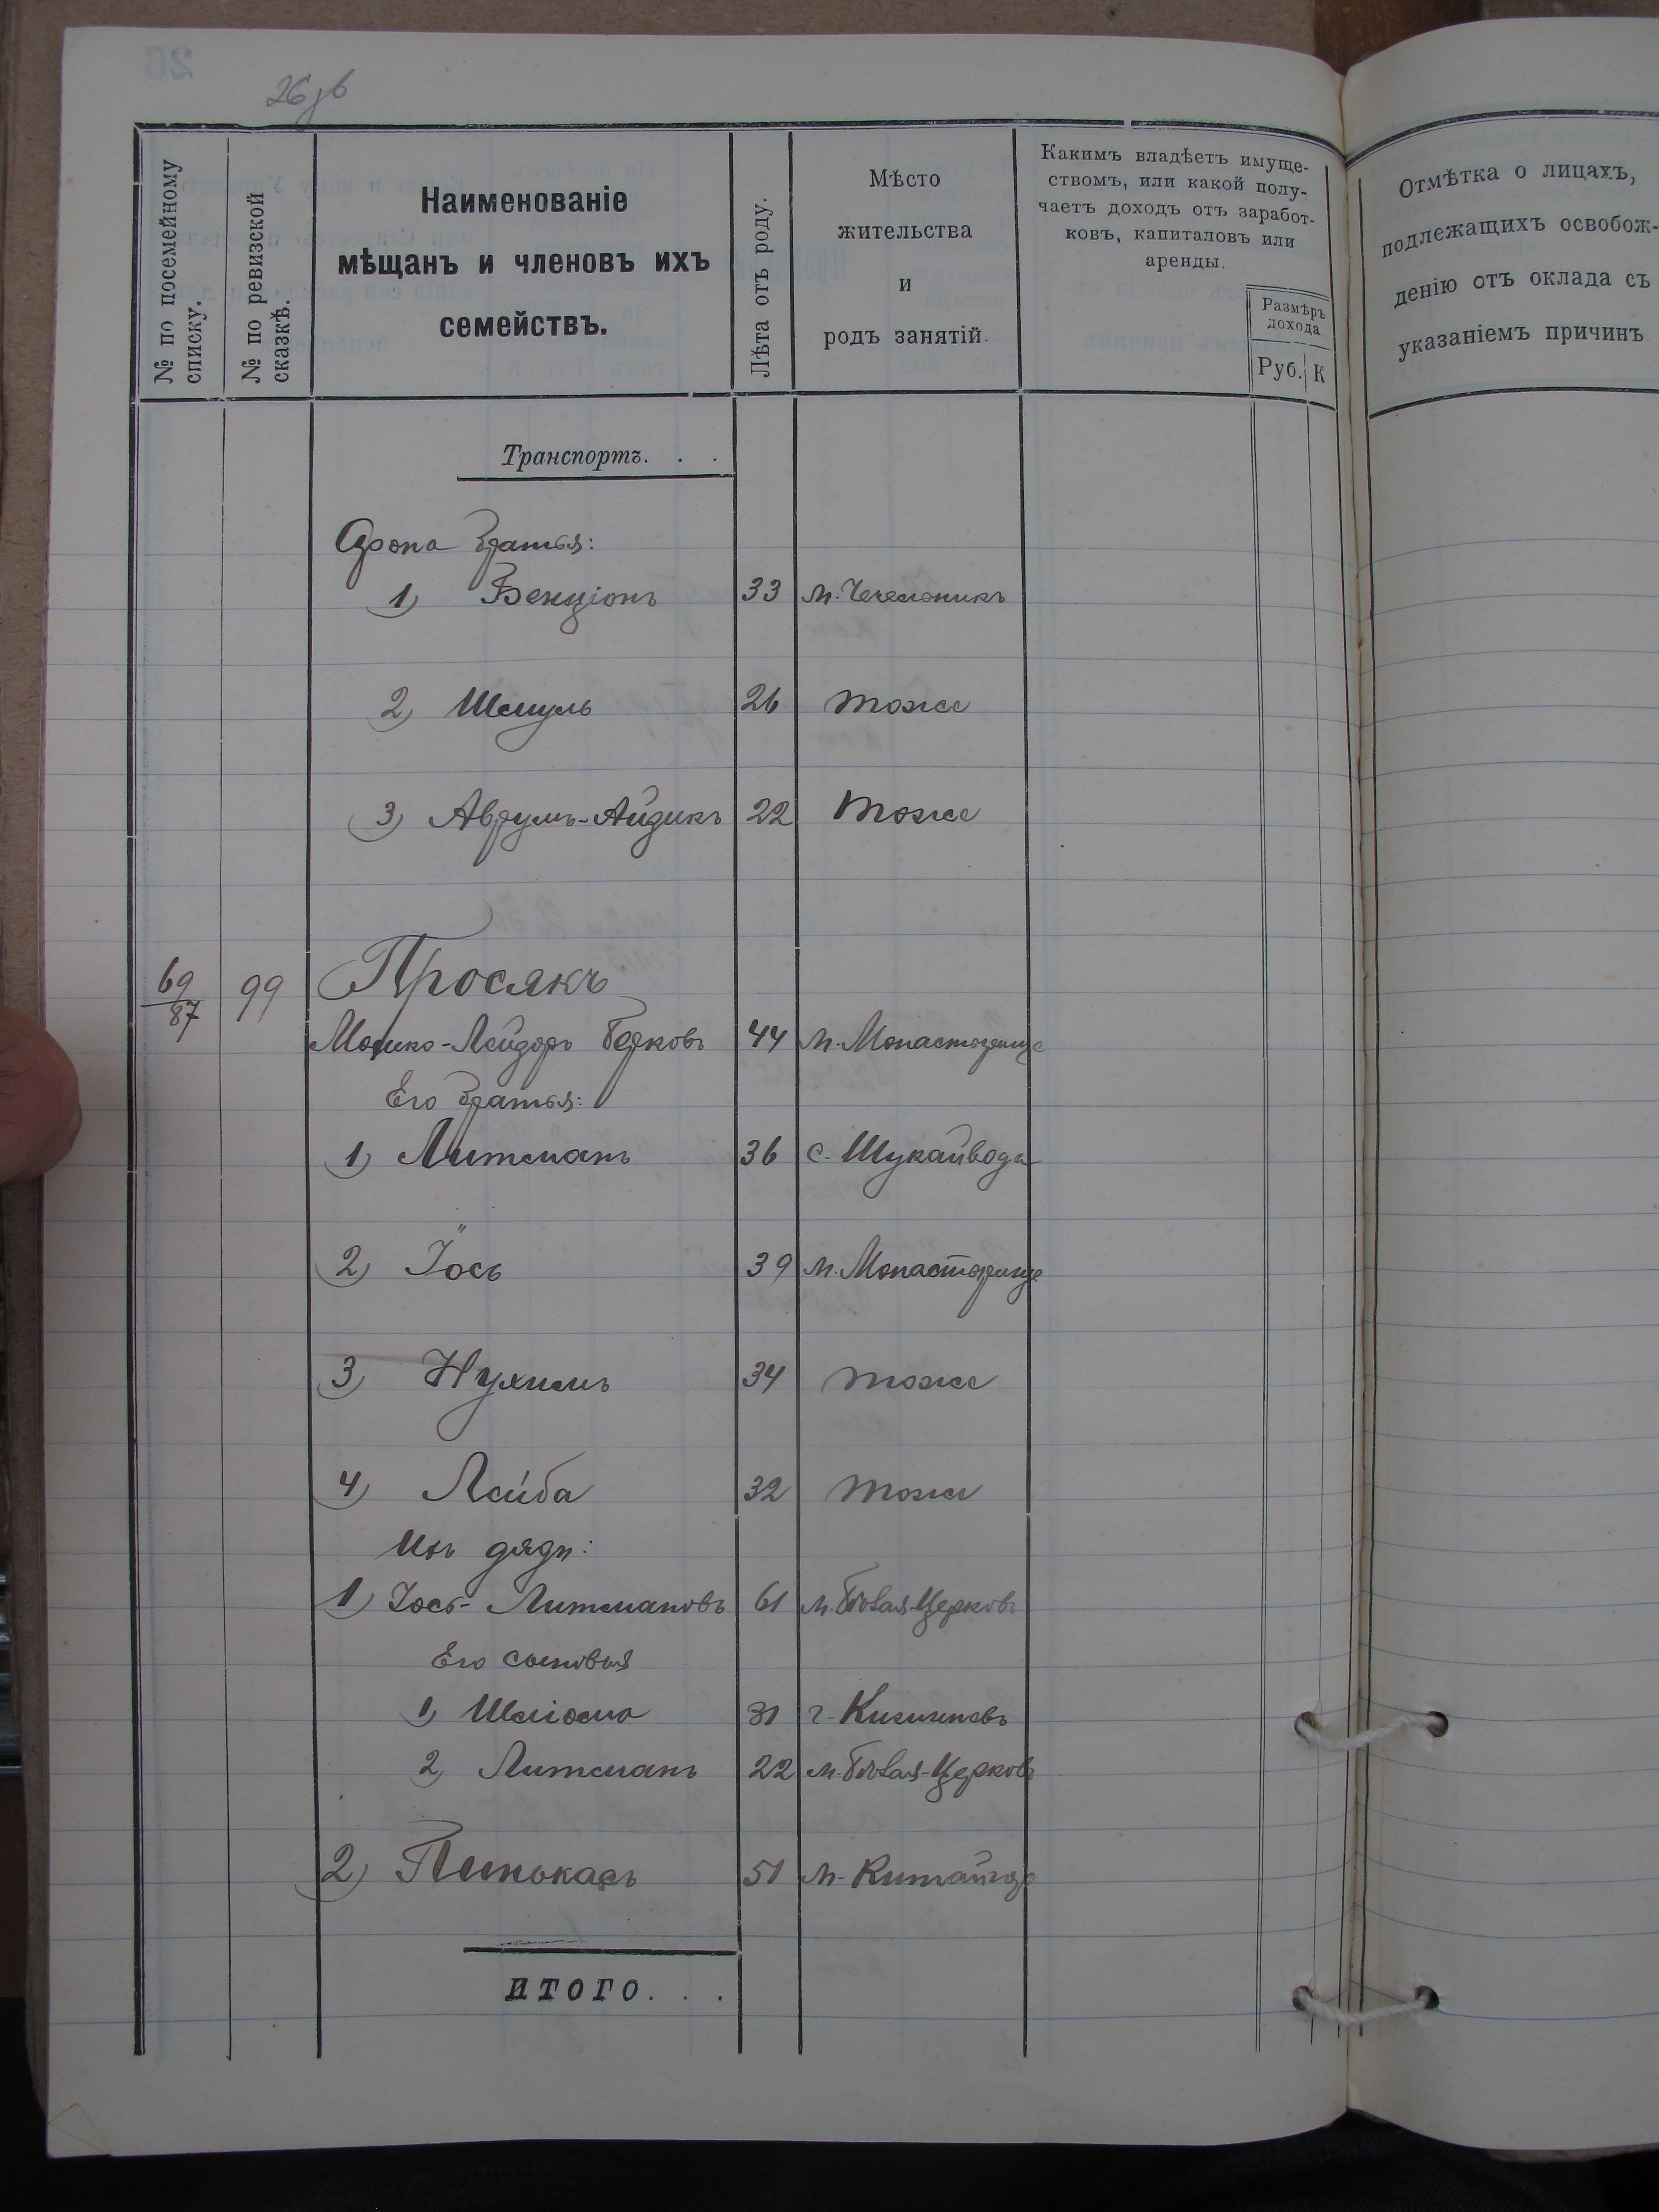 26 зв
№ по посемейному
списку.
№ по ревизской
сказкѣ.
Наименованіе
мѣщанъ и членовъ ихъ
семействъ.
Лѣта отъ роду.
Мѣсто
жительства
и
родъ занятій.
Какимъ владѣетъ имуще-
ствомъ, или какой полу-
чаетъ доходъ отъ заработ-
ковъ, капиталовъ или
аренды.
Размѣръ
дохода.
Руб. К
Отмѣтка о лицахъ,
подлежащихъ освобож-
денію отъ оклада съ
указаніемъ причинъ
Транспортъ. . .
Арона братья:
1) Бенціонъ 33 м. Чечельникъ
2) Шмуль 26 тоже
3) Аврумъ-Айзикъ 22 тоже
69/87 99 Просякъ
Мошко-Лейзоръ Берковъ 44 м. Монастырище
Его братья:
1) Литманъ 36 с. Шукайвода
2) Іось 39 м. Монастырище
3) Нухимъ 34 тоже
4) Лейба 32 тоже
Ихъ дяди:
1) Іось-Литмановъ 61 м. Бѣлая-Церковь
Его сыновья
1) Шліома 31 г. Кишиневъ
2) Литманъ 22 м. Бѣлая-Церковь
2) Пинькасъ 51 м. Китайгор
ИТОГО. . .